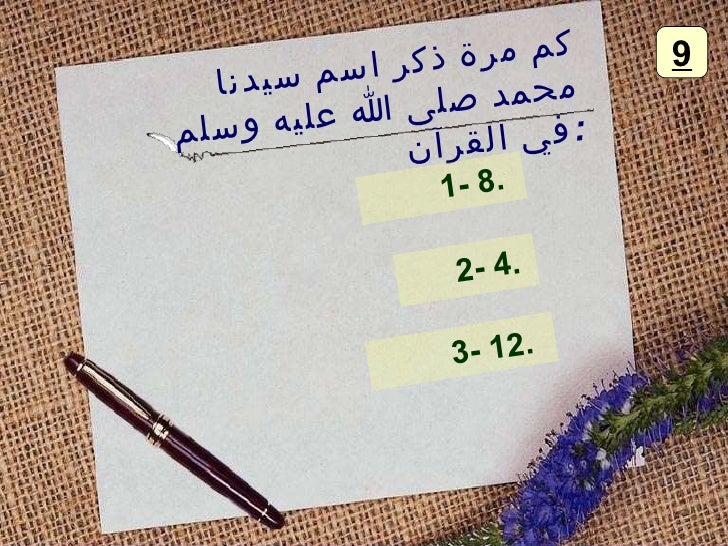 9
كم مرة ذكر اسم سيدنا
محمد صلى الله عليه وسلم
في القرآن :
1- 8.
2- 4.
3- 12.